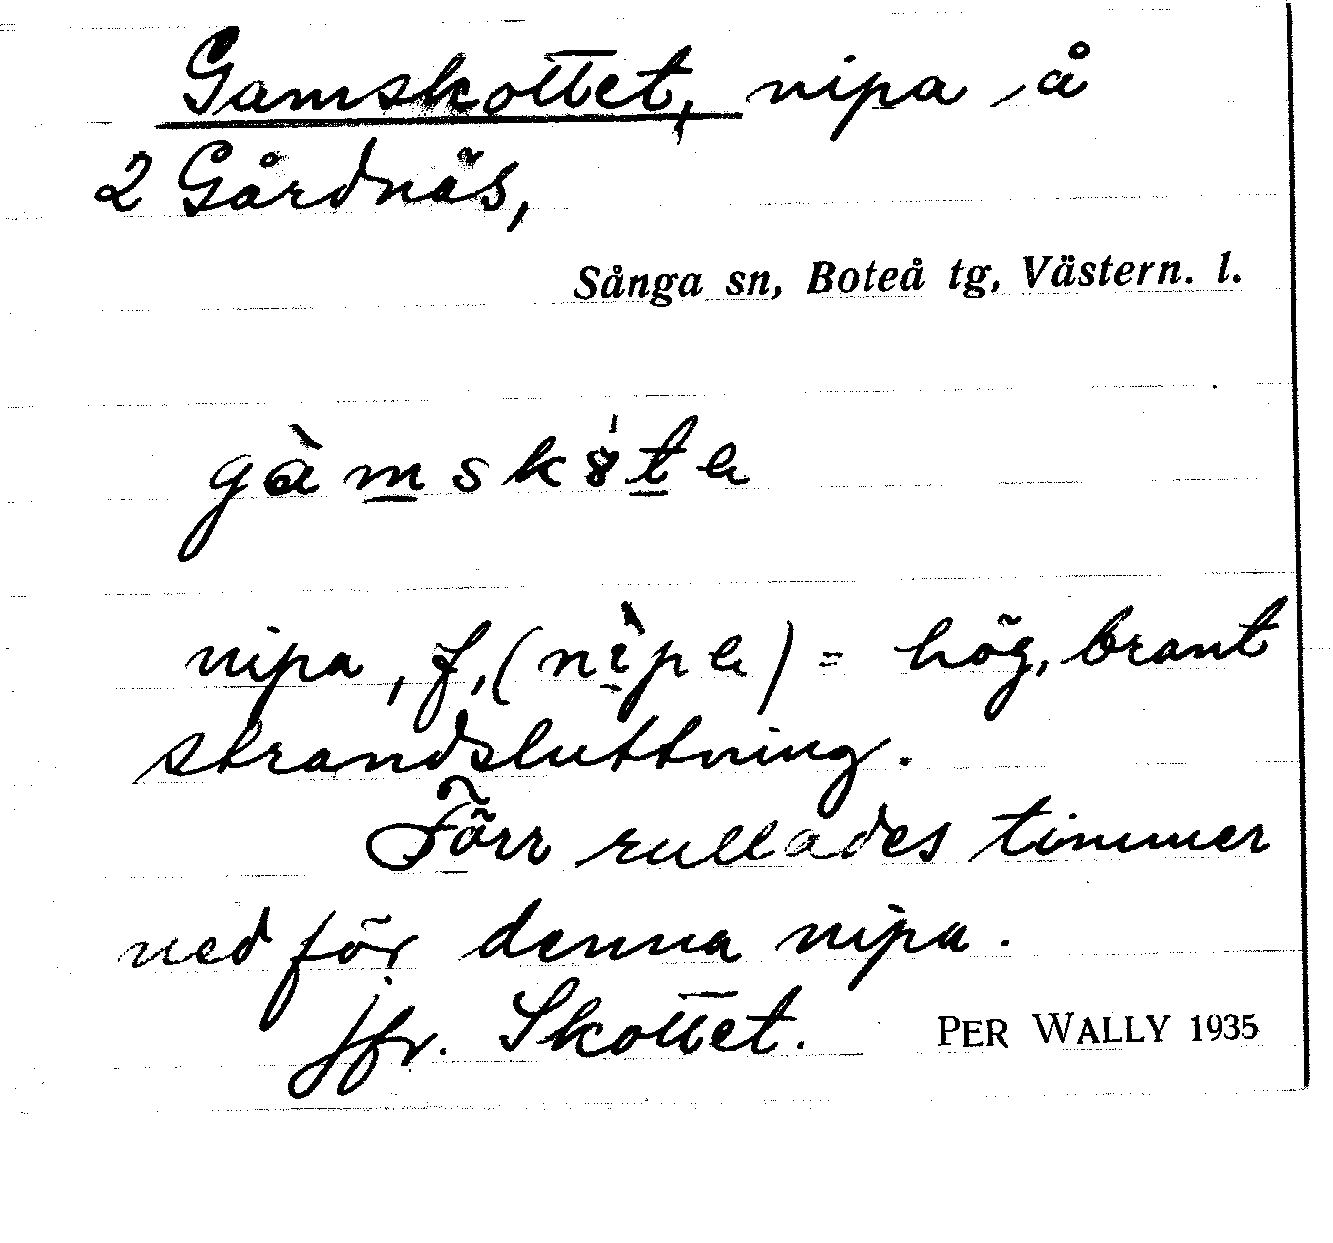 Gamskottet, nipa å
2 Gårdnäs,
Sånga sn, Boteå tg, Västern. l.
nipa, f, = hög, brant
strandsluttning.
Förr rullades timmer
ned för denna nipa.
jfr. Skottet.
PER WALLY 1935